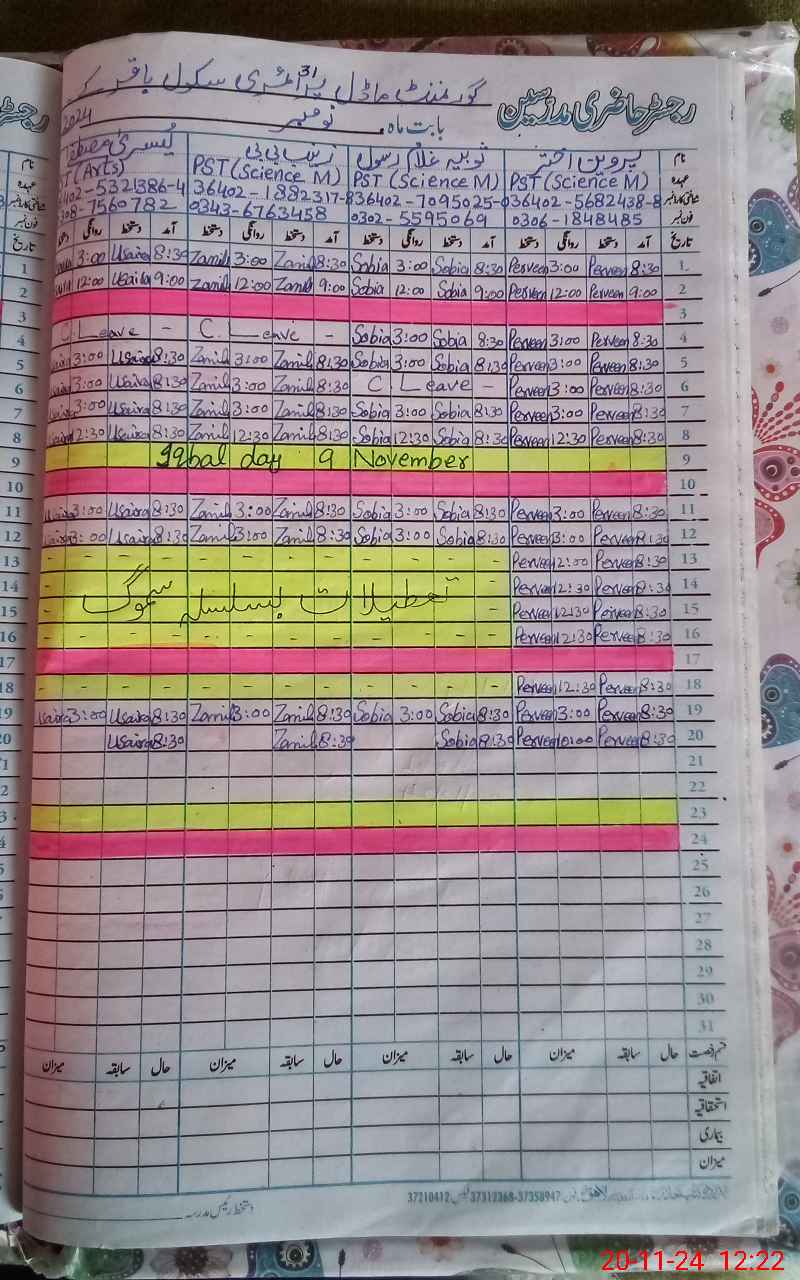 رجسٹر حاضری مدرسین
گورنمنٹ ماڈل پرائمری سکول باقر کے
31
بابت ماہ نومبر 2024
نام پروین اختر ثوبیہ غلام رسول زینب بی بی یسریٰ
عہدہ PST (Science M) PST (Science M) PST (Science M) (Arts)
شناختی کارڈ نمبر 36402-5682438-8 36402-7095025-0 36402-1882317-8 402-5321386-4
فون نمبر 0306-1848485 0302-5595069 0343-6763458 308-7560782
تاریخ آمد دستخط روانگی دستخط آمد دستخط روانگی دستخط آمد دستخط روانگی دستخط آمد دستخط روانگی
1 8:30 Perveen 3:00 Perveen 8:30 Sobia 3:00 Sobia 8:30 Zanib 3:00 Zanib 8:30 Usaira 3:00
2 9:00 Perveen 12:00 Perveen 9:00 Sobia 12:00 Sobia 9:00 Zanib 12:00 Zanib 9:00 Usaira 12:00
3
4 8:30 Perveen 3:00 Perveen 8:30 Sobia 3:00 Sobia - C. Leave - C. Leave
5 8:30 Perveen 3:00 Perveen 8:30 Sobia 3:00 Sobia 8:30 Zanib 3:00 Zanib 8:30 Usaira 3:00
6 8:30 Perveen 3:00 Perveen - C Leave 8:30 Zanib 3:00 Zanib 8:30 Usaira 3:00
7 8:30 Perveen 3:00 Perveen 8:30 Sobia 3:00 Sobia 8:30 Zanib 3:00 Zanib 8:30 Usaira 3:00
8 8:30 Perveen 12:30 Perveen 8:30 Sobia 12:30 Sobia 8:30 Zanib 12:30 Zanib 8:30 Usaira 12:30
9 Iqbal day 9 November
10
11 8:30 Perveen 3:00 Perveen 8:30 Sobia 3:00 Sobia 8:30 Zanib 3:00 Zanib 8:30 Usaira 3:00
12 8:30 Perveen 3:00 Perveen 8:30 Sobia 3:00 Sobia 8:30 Zanib 3:00 Zanib 8:30 Usaira 3:00
13 8:30 Perveen 12:00 Perveen - - - - - - - - - - - -
14 8:30 Perveen 12:30 Perveen
تعطیلات بسلسلہ سموگ
15 8:30 Perveen 12:30 Perveen
16 8:30 Perveen 12:30 Perveen - - - - - - - - - - - -
17
18 8:30 Perveen 12:30 Perveen - - - - - - - - - - - -
19 8:30 Perveen 3:00 Perveen 8:30 Sobia 3:00 Sobia 8:30 Zanib 3:00 Zanib 8:30 Usaira 3:00 Usaira
20 8:30 Perveen 10:00 Perveen 8:30 Sobia 8:30 Zanib 8:30 Usaira
21
22
23
24
25
26
27
28
29
30
31
قسم رخصت حال سابقہ میزان حال سابقہ میزان حال سابقہ میزان حال سابقہ میزان
اتفاقیہ
استحقاقیہ
بیماری
میزان
37358947-37312368 فیکس 37210412
دستخط رئیس مدرسہ
20-11-24 12:22